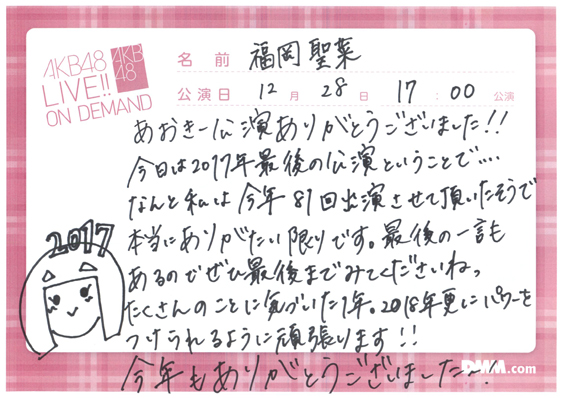 AKB48
LIVE!!
ON DEMAND
AKB
48
名前 福岡聖菜
公演日 12月28日 17:00公演
あおきー公演ありがとうございました!!
今日は2017年最後の公演ということで....
なんと私は今年81回出演させて頂いたそうで
本当にありがたい限りです。最後の一言も
あるのでぜひ最後までみてくださいねっ
たくさんのことに気づいた1年。2018年更にパワーを
つけられるように頑張ります!!
今年もありがとうございました〜!
2017
DMM.com